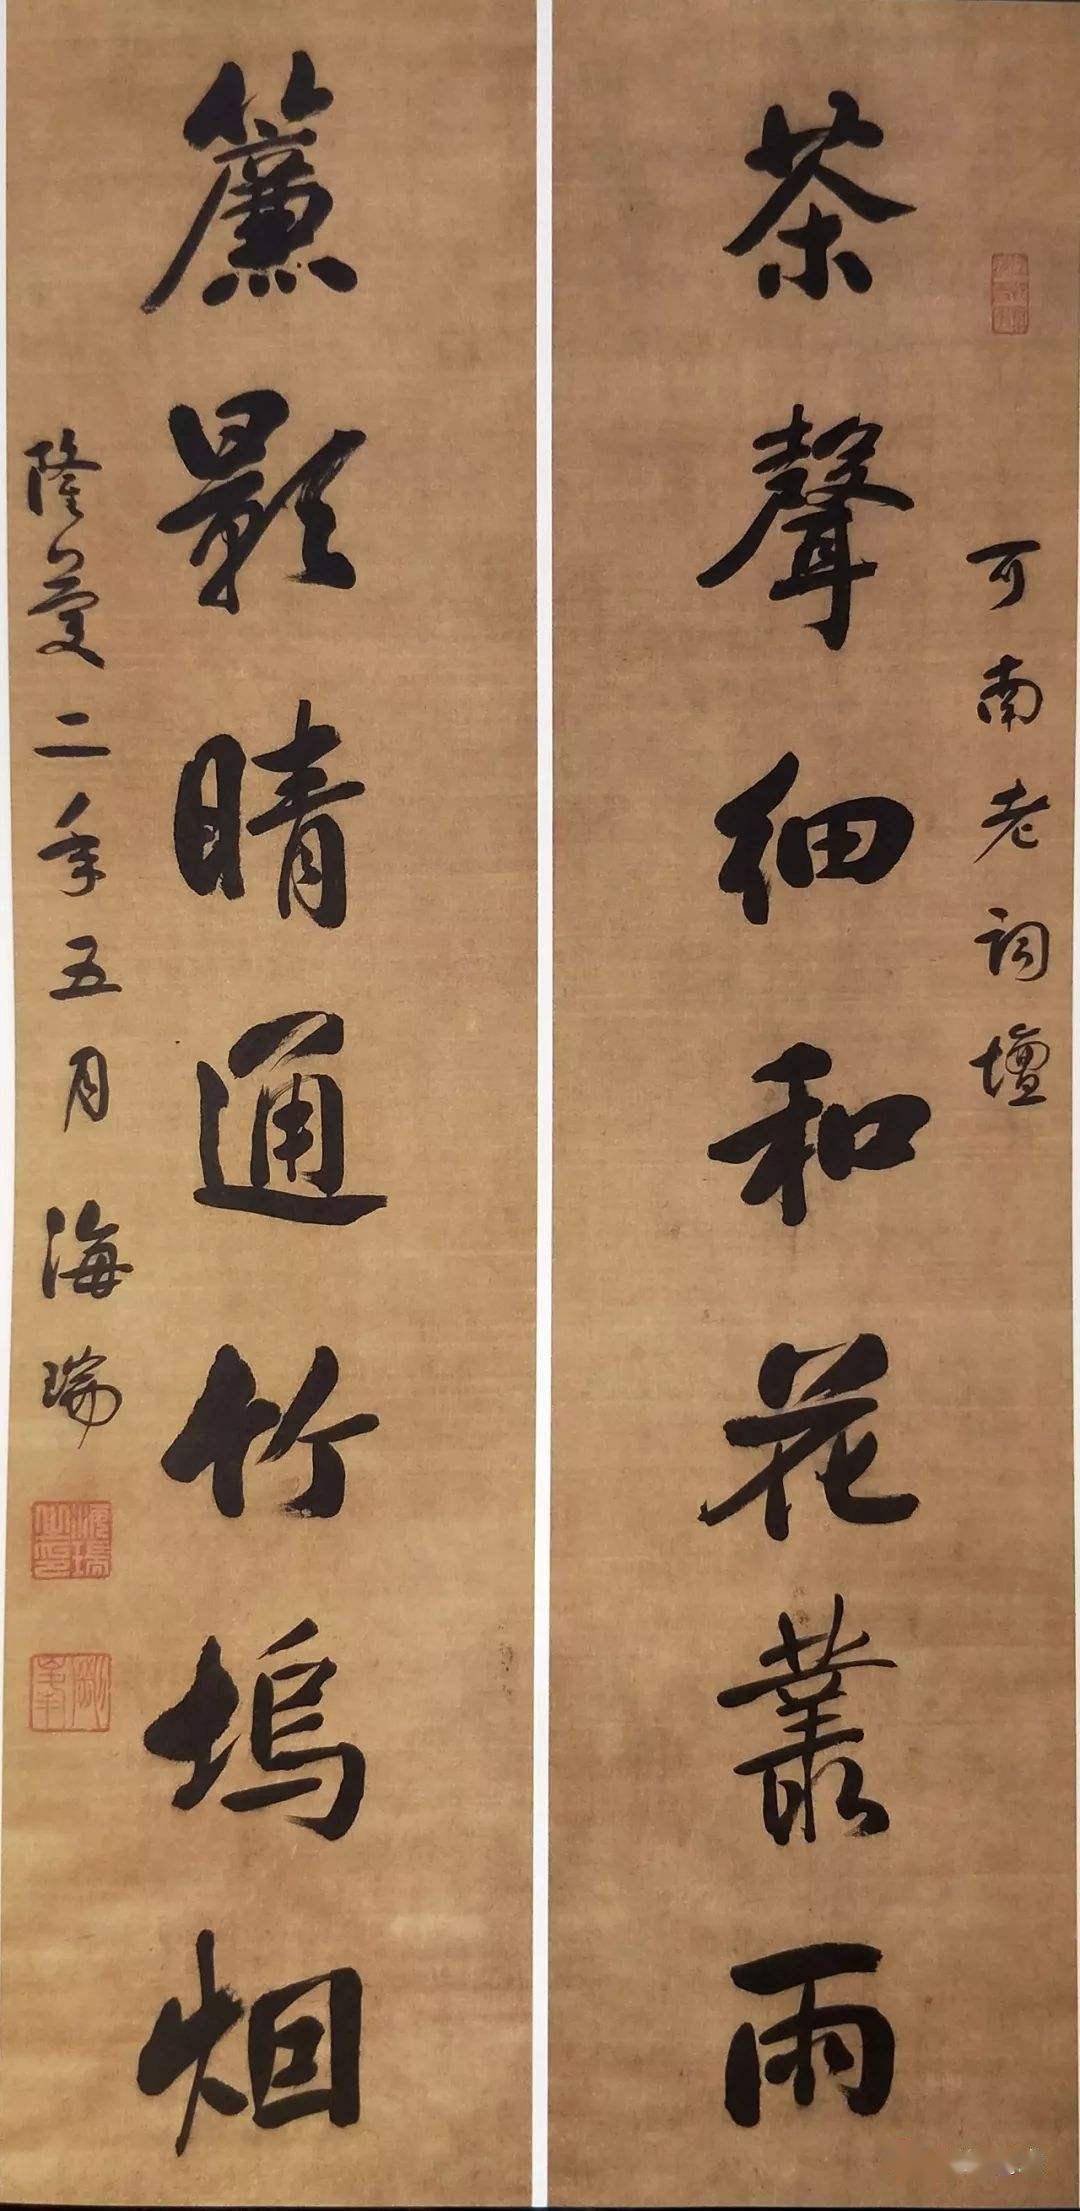 可南老詞壇
茶聲細和花叢雨
簾影晴通竹塢烟
隆慶二年五月 海瑞
海瑞之印
剛峯